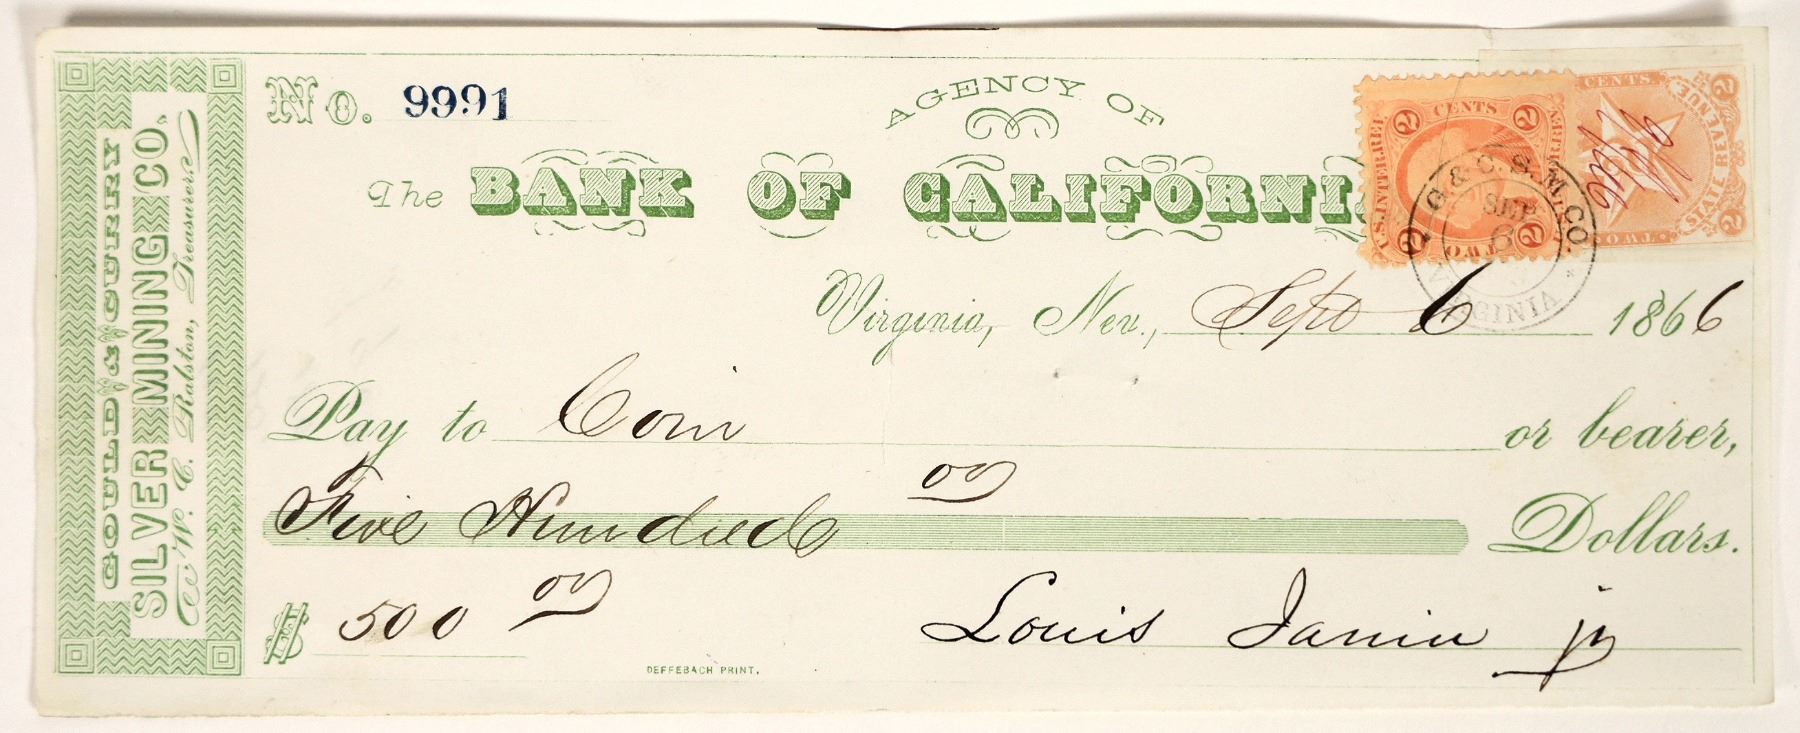 GOULD & CURRY
SILVER MINING CO.
W. C. Ralston, Treasurer
No. 9991
AGENCY OF
The BANK OF CALIFORNIA
2 CENTS 2
U.S. INTER. REV.
2 TWO 2
CENTS. 2
STATE REVENUE
TWO 2
G. & C. S. M. CO.
SEP
6
VIRGINIA
Virginia, Nev., Sept 6 1866
Pay to Coin or bearer,
Five Hundred 00 Dollars.
$ 500 00
Louis Janin jr
DEFFEBACH PRINT.